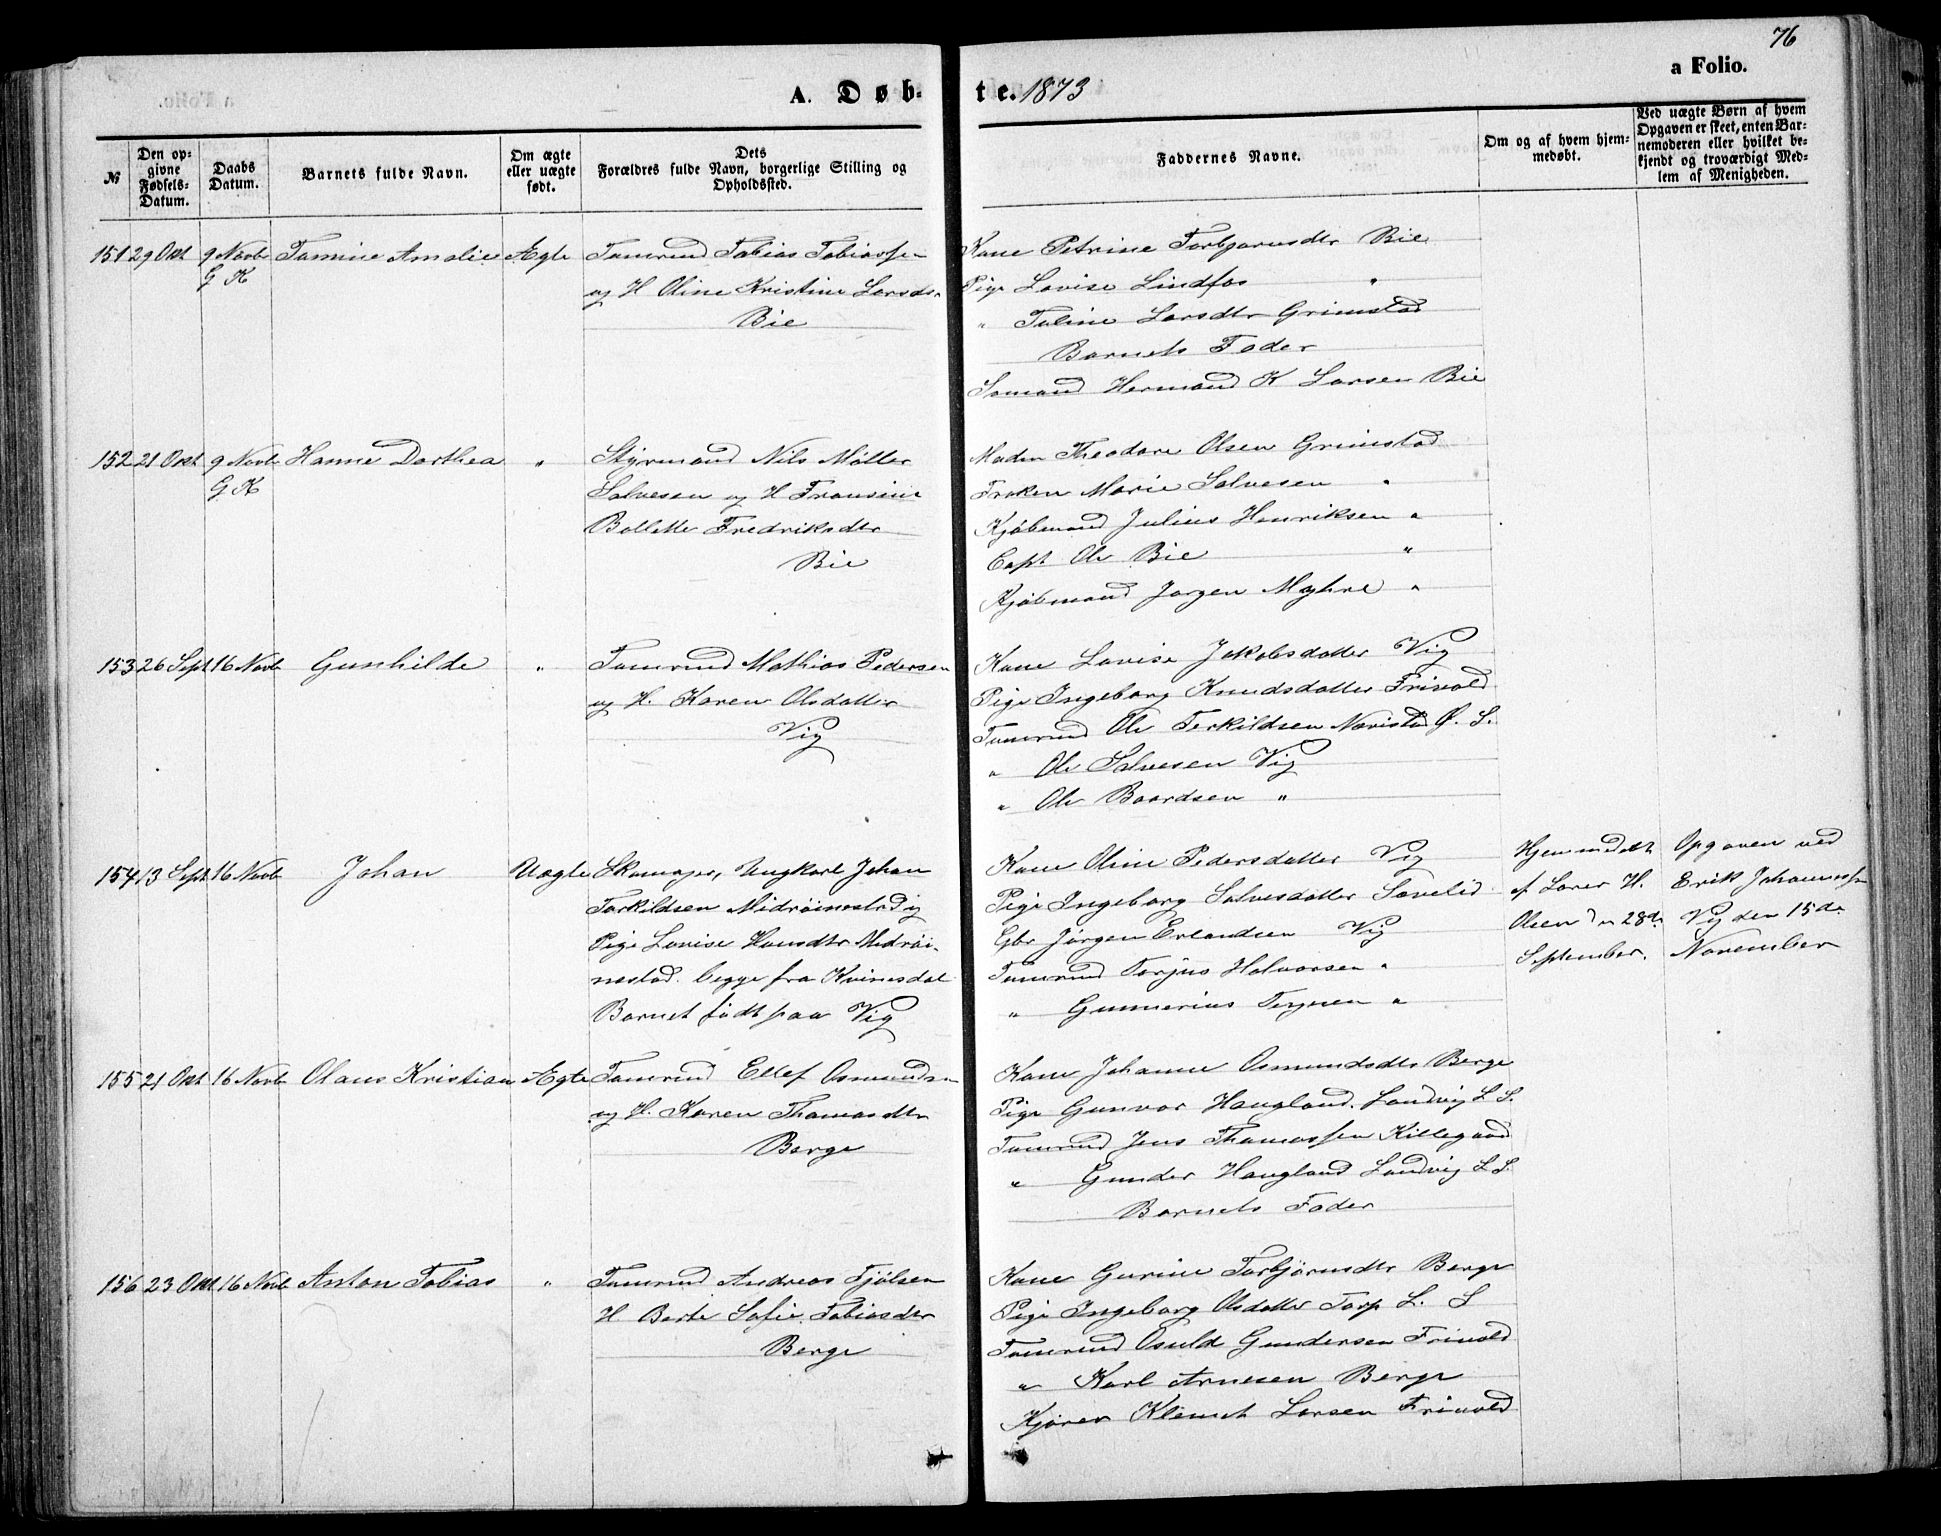 76
a Folio.
A. Døb-
te. 1873
№
Den op-
givne
Fødsels-
Datum.
Daabs
Datum.
Barnets fulde Navn.
Om ægte
eller uægte
født.
Dets
Forældres fulde Navn, borgerlige Stilling og
Opholdssted.
Faddernes Navne.
Om og af hvem hjem-
medøbt.
Ved uægte Børn af hvem
Opgaven er skeet, enten Bar-
nemoderen eller hvilket be-
kjendt og troværdigt Med-
lem af Menigheden.
151 29 Okt 9 Novb Tomine Amalie Ægte Tømrmd Tobias Tobiassen
G K
og H Oline Kristine Larsdr
Bie
Kone Petrine Torbjørnsdtr Bie
Pige Lovise Lindfos "
" Taline Larsdtr Grimstad
Barnets Fader
Sømand Hermand K Larsen Bie
152 21 Okt 9 Novb Hanne Dorthea " Styrmand Nils Møller
G K
Salvesen og H Fransine
Bollette Fredriksdtr
Bie
Madm Theodore Olsen Grimstad
Frøken Marie Salvesen "
Kjøbmand Julius Henriksen "
Capt Ole Bie "
Kjøbmand Jørgen Myhre "
153 26 Sept 16 Novb Gunhilde " Tømrmd Mathias Pedersen
og H. Karen Olsdatter
Vig
Kone Lovise Jakobsdatter Vig
Pige Ingeborg Knudsdatter Frivold
Tømrmd Ole Terkildsen Navistad Ø. S.
" Ole Salvesen Vig
" Ole Baardsen "
154 13 Sept 16 Novb Johan Uægte Skomager, Ungkarl Johan
Torkildsen Midrøinestad og
Pige Lovise Hansdtr Medrøi-
nestad. begge fra Kvinesdal
Barnet født paa Vig
Kone Oline Pedersdatter Vig
Pige Ingeborg Salvesdatter Sævelid
Gbr Jørgen Erlandsen Vig
Tømrmd Torjus Halvorsen "
" Gunnerius Terjesen "
Hjemmedøbt
af Lærer H.
Olsen den 28de
September.
Opgaven ved
Erik Johannessen
Vig den 15de
November
155 21 Okt 16 Novb Olaus Kristian Ægte Tømrmd Ellef Osmundsen
og H. Karen Thomasdtr
Berge
Kone Johanne Osmundsdtr Berge
Pige Gunvor Haugland. Landvig L S.
Tømrmd Jens Thomassen Killegaard
" Gunder Haugland Landvig L S.
Barnets Fader
156 23 Okt 16 Novb Anton Tobias " Tømrmd Andreas Fjølsen
H Berte Sofie Tobiasdtr
Berge
Kone Gurine Torbjørnsdtr Berge
Pige Ingeborg Olsdatter Torp L. S
Tømrmd Osuld Gundersen Frivold
" Karl Arnesen Berge
Kjører Klemet Larsen Frivold